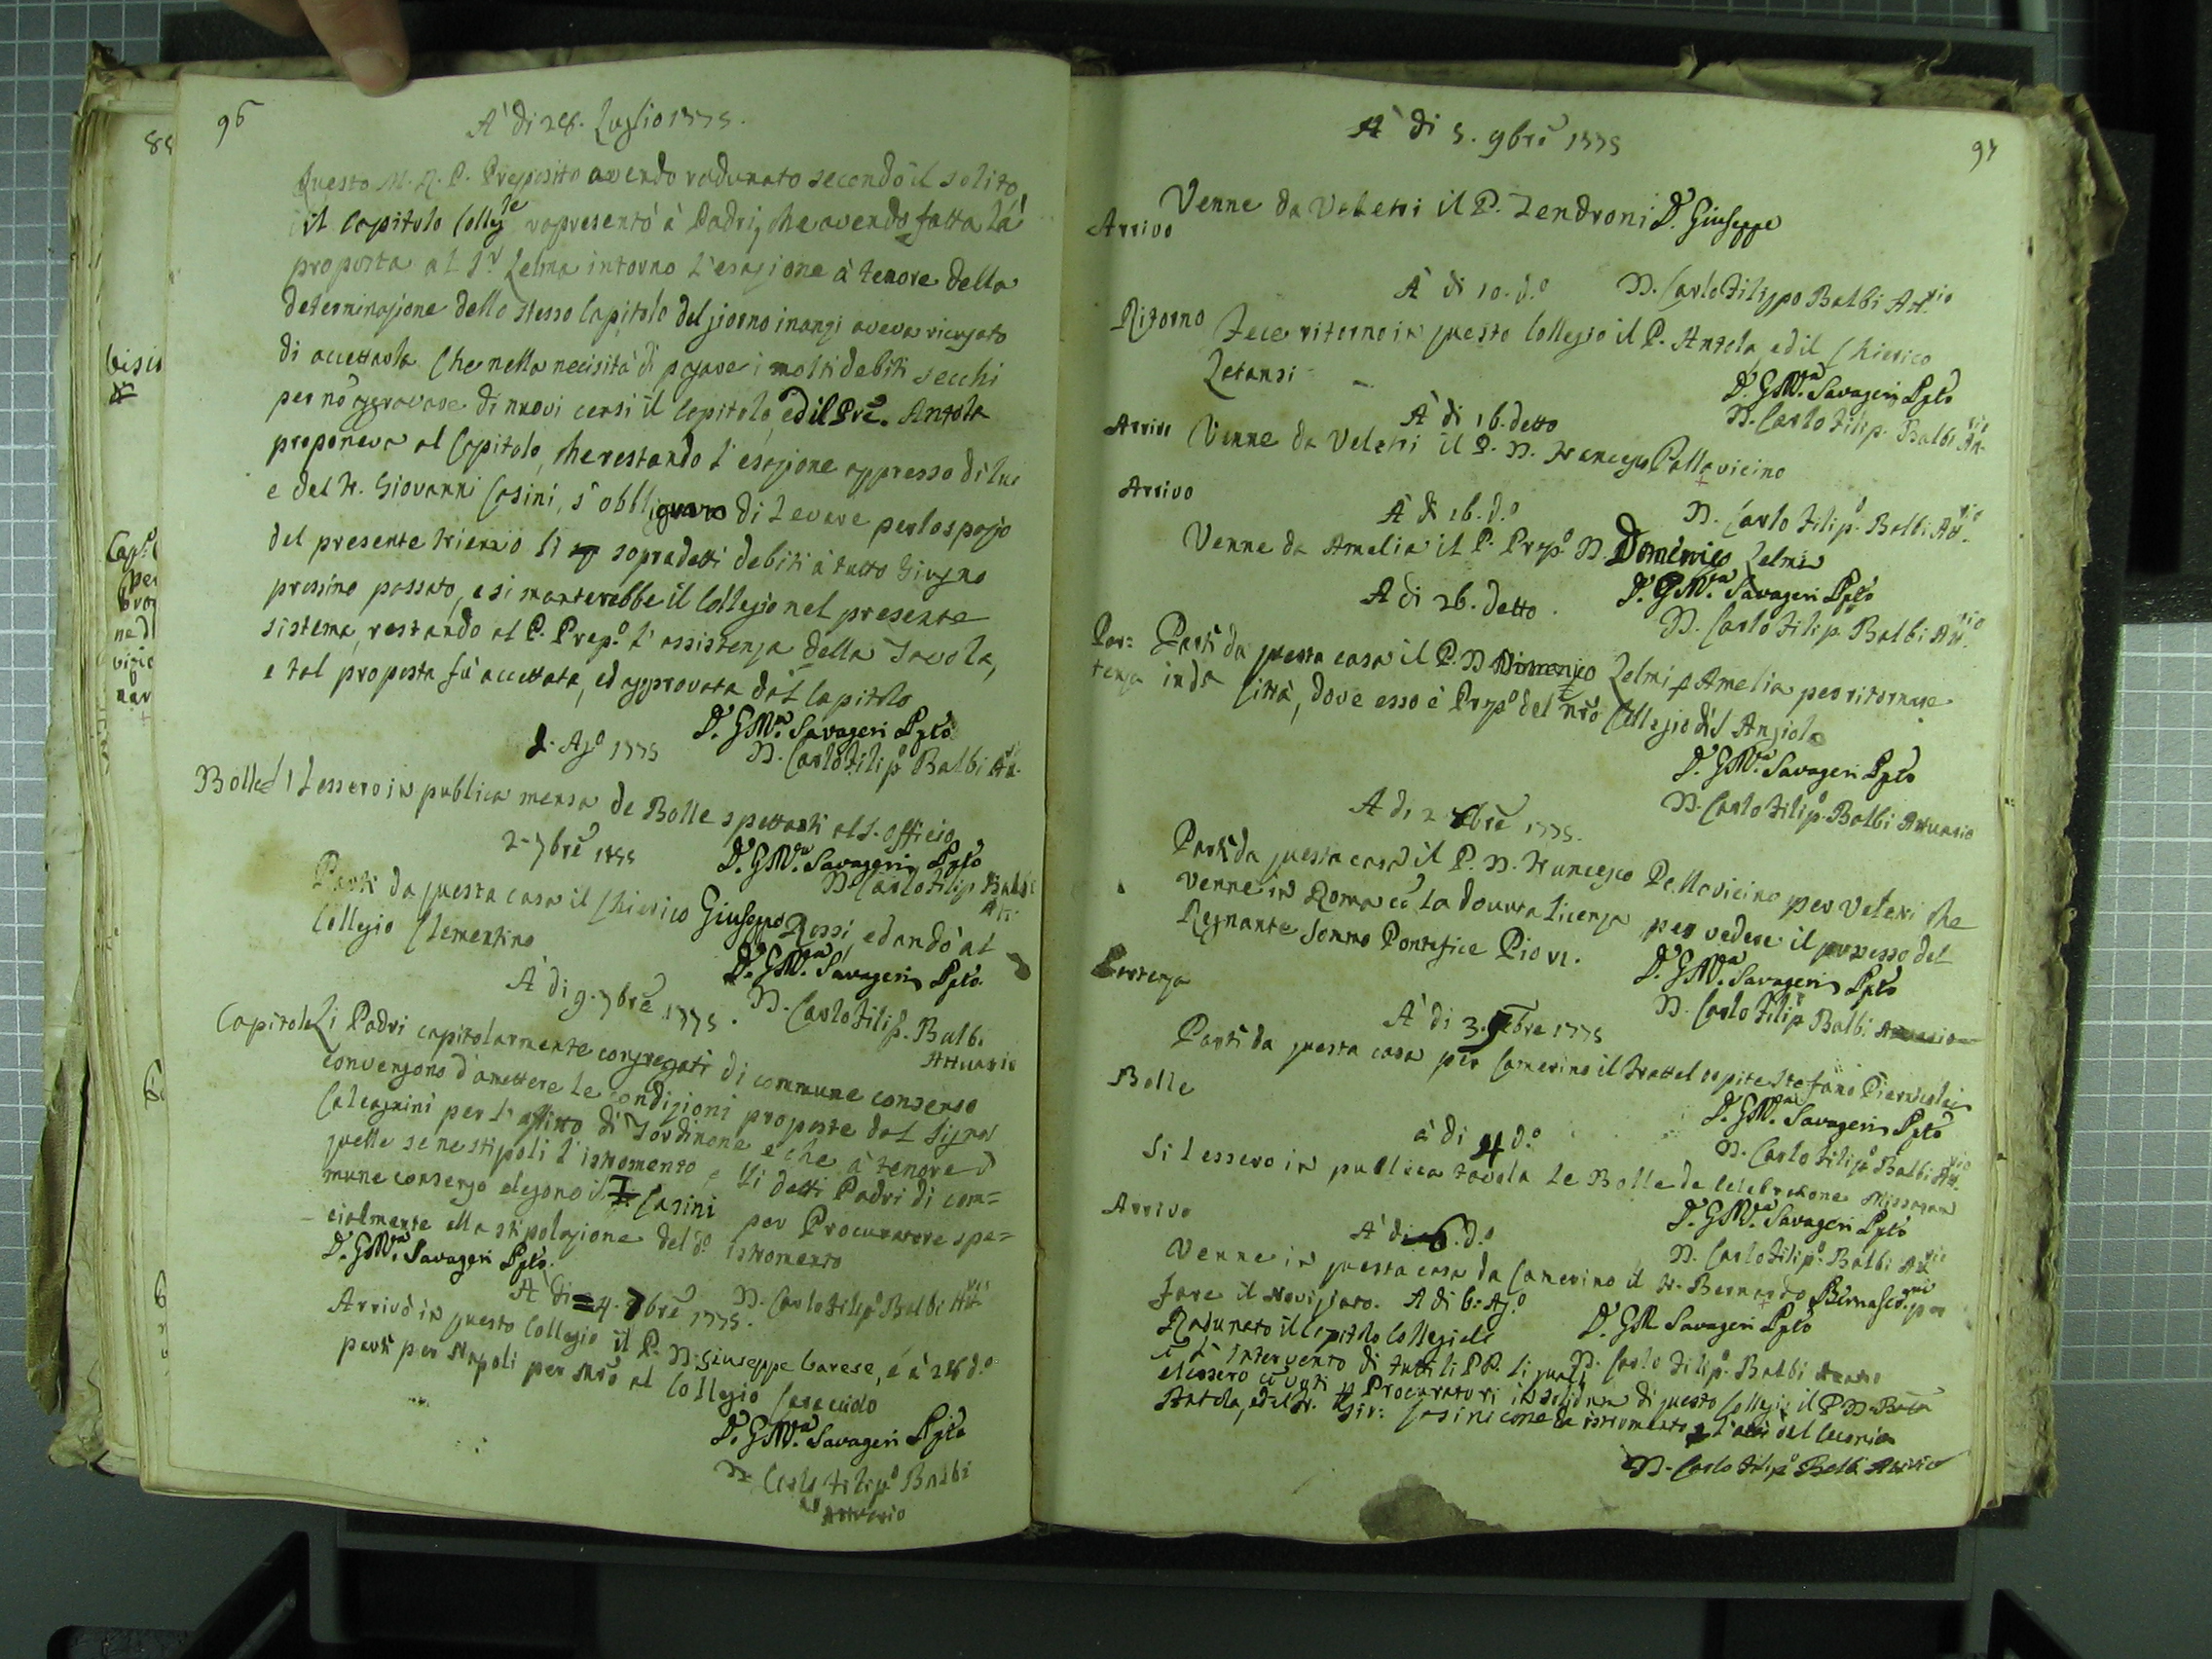 96
A' di 28. Luglio 1775.
Questo M. R. P. Preposito avendo radunato secondo il solito
il Capitolo Colleg.le rapresentò à Padri, che avendo fatta la
proposta al S.r Lelma intorno l'esazione à tenore della
determinazione dello stesso Capitolo del giorno inanzi aveva ricusato
di accettarla. Che nella necisità di pagare i molti debiti secchi
per nõ aggravare di nuovi censi il Capitolo, ed il Prẽ. Antola
proponeva al Capitolo, che restando l'esazione appresso di lui
e del Fr. Giovanni Casini, s'obbligavano di levare per lo spazio
del presente trienio li sopradetti debiti à tutto Giugno
prossimo passato, e si manterebbe il Collegio nel presente
sistema, restando al P. Prep.o l'assistenza della Tavola,
e tal proposta fù accettata, ed approvata dal Capitolo
D. G. M.a Savageri Pp̃to
2. Ag.o 1775 D. Carlo Filip.o Balbi Att.
Bolle Si lessero in publica mensa de Bolle spettanti al S. Officio
D. G. M.a Savageri Pp̃to
2. 7brẽ 1775 D. Carlo Filip Balbi
Att.
Partì da questa casa il Chierico Giuseppe Rossi, ed andò al
Collegio Clementino
D. G. M.a Savageri Pp̃to.
A' di 9. 7brẽ 1775. D. Carlo Filip.o Balbi
Attuario
Capitolo Li Padri capitolarmente congregati di commune consenso
convengono d'amettere le condizioni proposte dal Signor
Calcagnini per l'affitto di Tordinone e che à tenore di
quelle se ne stipoli l'istromento e li detti Padri di com=
mune consenso elegono il Casini per Procuratore spe=
cialmente alla stipolazione del d.o istromento
D. G. M.a Savageri Pp̃to.
D. Carlo Filip.o Balbi Att.rio
A' di 4. 7brẽ 1775.
Arrivò in questo Collegio il P. D. Giuseppe Varese, e à 28 d.o
partì per Napoli per al Collegio
D. G. M.a Savageri Pp̃to
D. Carlo Filip.o Balbi
Attuario
97
A' di 5. 9brẽ 1775
Arrivo Venne da Veletri il P. Zendroni D. Giuseppe
D. Carlo Filippo Balbi Att.rio
A' di 10. d.o
Ritorno Fece ritorno in questo Collegio il P. Antola, ed il Chierico
D. G. M.a Savageri Pp̃to
D. Carlo Filip. Balbi Att.rio
A' di 16. detto
Arrivo Venne da Veletri il P. D. Francesco Pallavicino
D. Carlo Filip.o Balbi Att.rio
Arrivo
A' di 16. d.o
Venne da Amelia il P. Prep.o D. Domenico Zelmi
D. G. M.a Savageri Pp̃to
D. Carlo Filip.o Balbi Att.rio
A di 26. detto.
Par= Partì da questa casa il P. D. Domenico Zelmi p Amelia per ritornare
tenza in da Città, dove esso è Prep.o del nr̃o Collegio di S Angiolo
D. G. M.a Savageri Pp̃to
D. Carlo Filip.o Balbi Attuario
A di 2 Xbrẽ 1775.
Partì da questa casa il P. D. Francesco Pallavicino per Veletri che
venne in Roma cõ la dovuta licenza per vedere il possesso del
Regnante Sommo Pontefice Pio VI.
D. G. M.a Savageri Pp̃to
D. Carlo Filip.o Balbi Attuario
Partenza
A' di 3. Xbre 1775
Partì da questa casa per Camerino il Frattel ospite Stefano
D. G. M.a Savageri Pp̃to
D. Carlo Filip.o Balbi Att.rio
Bolle
à di 4 d.o
Si lessero in publica tavola le Bolle de Celebratione Missarum
D. G. M.a Savageri Pp̃to
D. Carlo Filip.o Balbi Att.rio
Arrivo
A' di 6. d.o
Venne in questa casa da Camerino il Fr. Bernardo per
fare il Noviziato.
D. G. M. Savageri Pp̃to
D. Carlo Filip.o Balbi Attuario
A di 6. Ag.o
Radunato il Capitolo Collegiale
cõ l'intervento di tutti li PP. li quali
elessero Procuratori in solidum di questo Collegio il P. D.
Antola, ed il Fr. Gio: Casini come da istromento
D. Carlo Filip.o Balbi Attuario